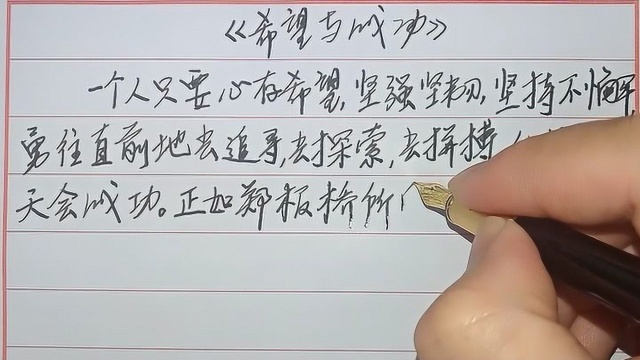 《希望与成功》
一个人只要心存希望,坚强坚韧,坚持不懈,
勇往直前地去追寻,去探索,去拼搏
天会成功。正如郑板桥所